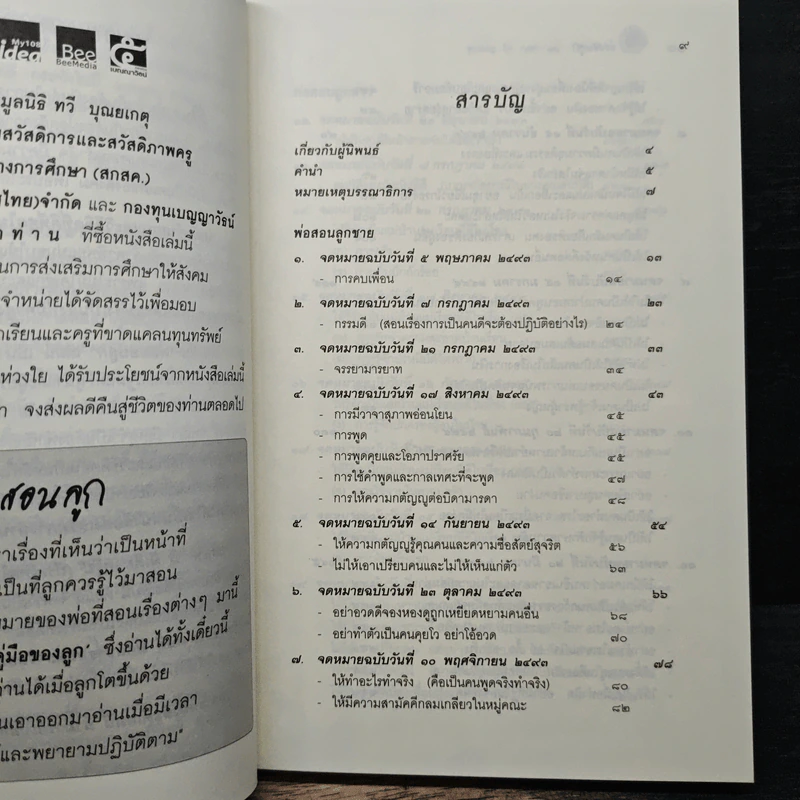 My108
idea
Bee
BeeMedia
เบญญาวัธน์
มูลนิธิ ทวี บุณยเกตุ
สวัสดิการและสวัสดิภาพครู
างการศึกษา (สกสค.)
ไทย)จำกัด และ กองทุนเบญญาวัธน์
ท่าน ที่ซื้อหนังสือเล่มนี้
นการส่งเสริมการศึกษาให้สังคม
จำหน่ายได้จัดสรรไว้เพื่อมอบ
กเรียนและครูที่ขาดแคลนทุนทรัพย์
ห่วงใย ได้รับประโยชน์จากหนังสือเล่มนี้
จงส่งผลดีคืนสู่ชีวิตของท่านตลอดไป
สอนลูก
าเรื่องที่เห็นว่าเป็นหน้าที่
เป็นที่ลูกควรรู้ไว้มาสอน
หมายของพ่อที่สอนเรื่องต่างๆ มานี้
คู่มือของลูก" ซึ่งอ่านได้ทั้งเดี๋ยวนี้
อ่านได้เมื่อลูกโตขึ้นด้วย
นเอาออกมาอ่านเมื่อมีเวลา
และพยายามปฏิบัติตาม"
๙
สารบัญ
เกี่ยวกับผู้นิพนธ์ ๔
คำนำ ๕
หมายเหตุบรรณาธิการ ๗
พ่อสอนลูกชาย
๑. จดหมายฉบับวันที่ ๕ พฤษภาคม ๒๔๙๓ ๑๓
- การคบเพื่อน ๑๔
๒. จดหมายฉบับวันที่ ๗ กรกฎาคม ๒๔๙๓ ๒๓
- กรรมดี (สอนเรื่องการเป็นคนดีจะต้องปฏิบัติอย่างไร) ๒๔
๓. จดหมายฉบับวันที่ ๒๑ กรกฎาคม ๒๔๙๓ ๓๓
- จรรยามารยาท ๓๔
๔. จดหมายฉบับวันที่ ๑๗ สิงหาคม ๒๔๙๓ ๔๓
- การมีวาจาสุภาพอ่อนโยน ๔๕
- การพูด ๔๕
- การพูดคุยและโอภาปราศรัย ๔๕
- การใช้คำพูดและกาลเทศะที่จะพูด ๔๗
- การให้ความกตัญญูต่อบิดามารดา ๔๘
๕. จดหมายฉบับวันที่ ๑๔ กันยายน ๒๔๙๓ ๕๔
- ให้ความกตัญญูรู้คุณคนและความซื่อสัตย์สุจริต ๕๖
- ไม่ให้เอาเปรียบคนและไม่ให้เห็นแก่ตัว ๖๓
๖. จดหมายฉบับวันที่ ๒๓ ตุลาคม ๒๔๙๓ ๖๖
- อย่าอวดดีจองหองดูถูกเหยียดหยามคนอื่น ๖๘
- อย่าทำตัวเป็นคนคุยโว อย่าโอ้อวด ๗๐
๗. จดหมายฉบับวันที่ ๑๐ พฤศจิกายน ๒๔๙๓ ๗๘
- ให้ทำอะไรทำจริง (คือเป็นคนพูดจริงทำจริง) ๘๐
- ให้มีความสามัคคีกลมเกลียวในหมู่คณะ ๘๒